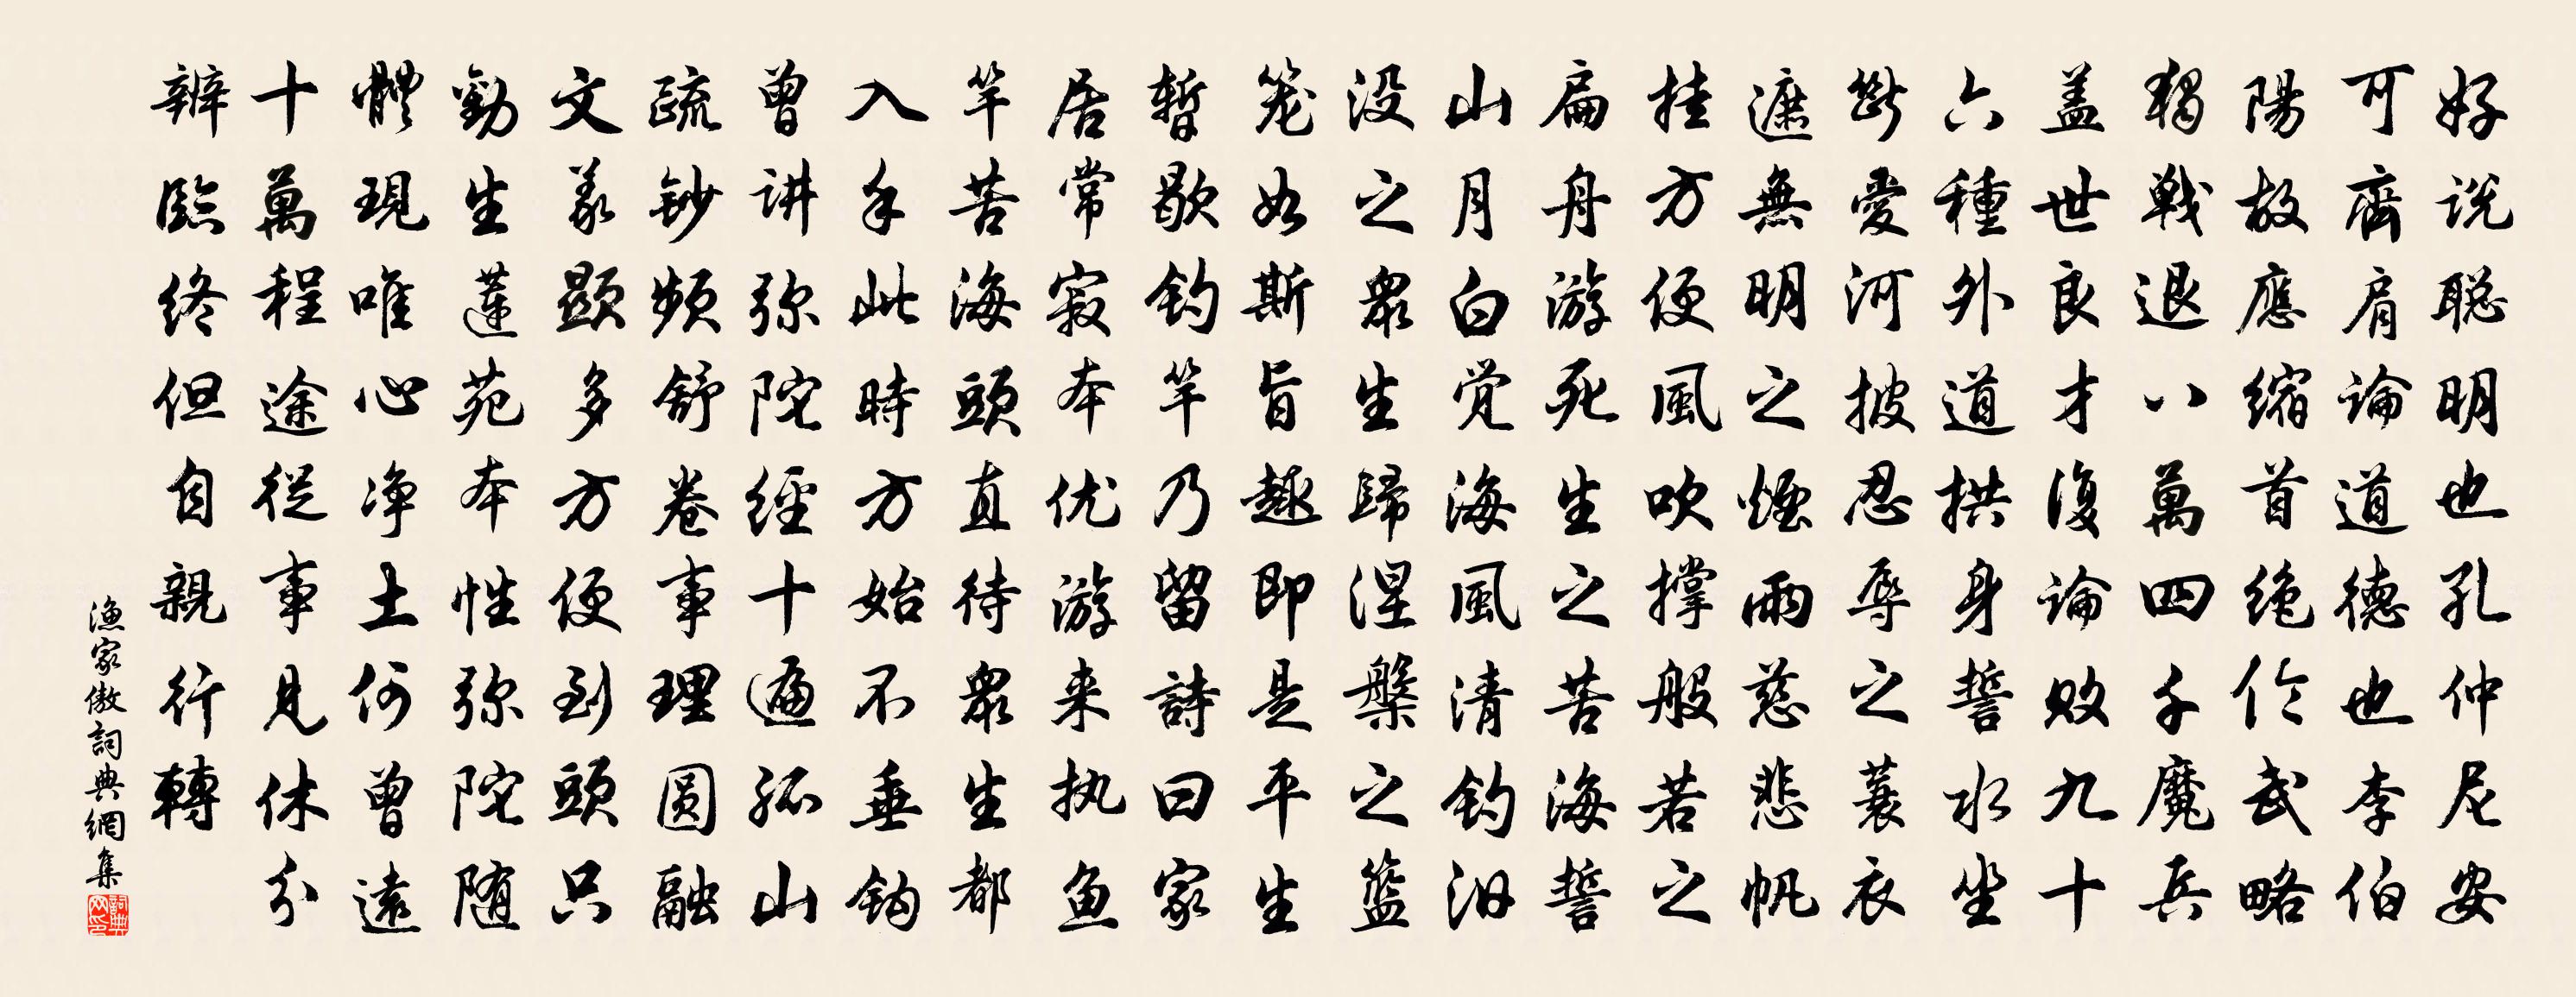 好说聪明也孔仲尼安
可齊肩論道德也李伯
陽故應缩首绝伦武略
獨戰退八萬四千魔兵
盖世良才復論败九十
六種外道拱身誓水坐
斷愛河披忍辱之蓑衣
遮無明之煙雨慈悲帆
挂方便風吹撑般若之
扁舟游死生之苦海誓
山月白觉海風清釣汩
没之衆生歸涅槃之籃
笼如斯旨趣即是平生
暫歇釣竿乃留詩曰家
居常寂本优游来执魚
竿苦海頭直待衆生都
入手此時方始不垂鈎
曾讲弥陀經十遍孤山
疏鈔頻舒卷事理圆融
文義顯多方便到頭只
勸生蓮苑本性弥陀随
體現唯心净土何曾遠
十萬程途從事見休分
辨臨终但自親行轉
漁家傲詞典網集
詞典网印